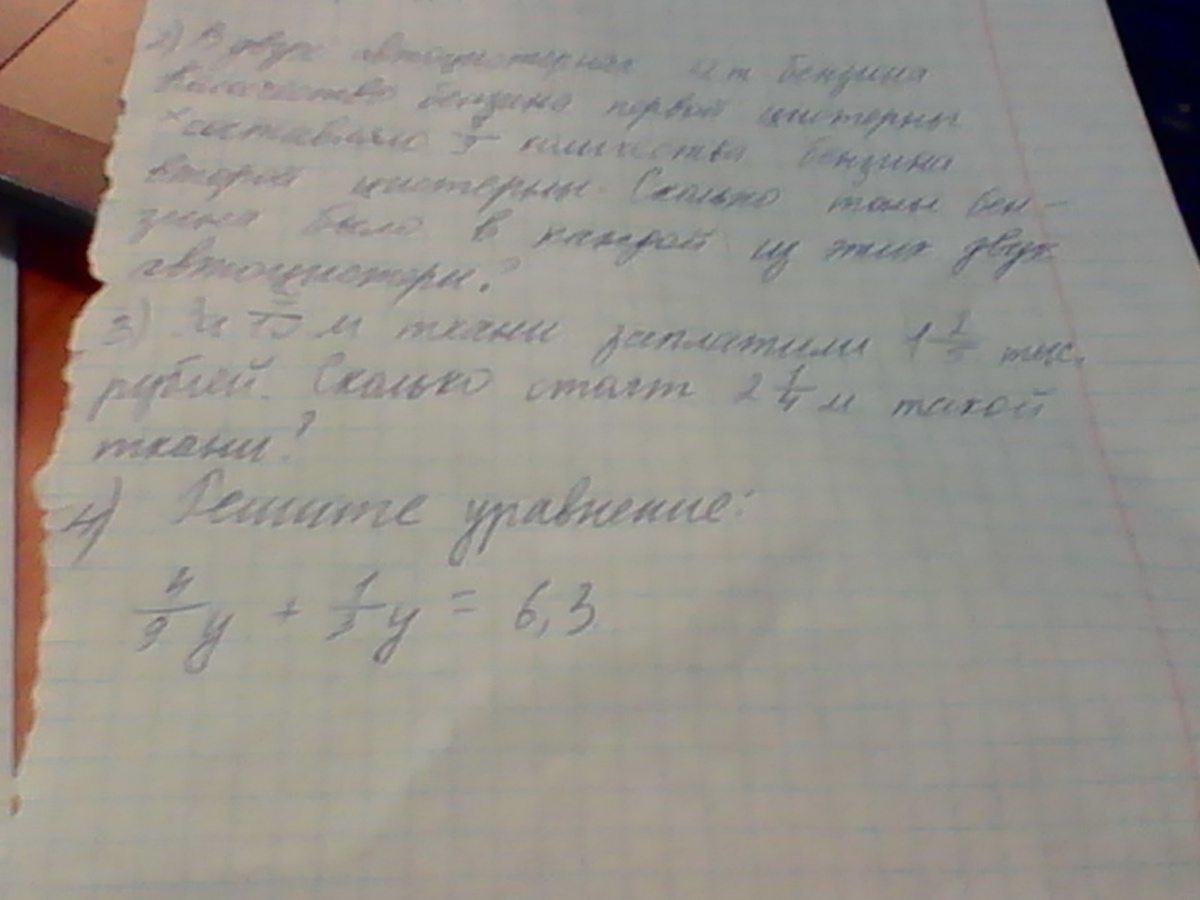 2) В двух автоцистернах т бензина
Количество бензина первой цистерны
составляло количества бензина
второй цистерны. Сколько тонн бен-
зина было в каждой из этих двух
автоцистерн?
3) За м ткани заплатили тыс.
рублей. Сколько стоят 2 1/4 м такой
ткани?
4) Решите уравнение:
4/9 y + 1/3 y = 6,3